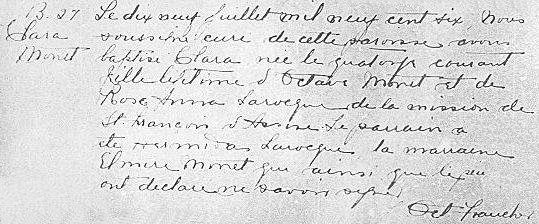 B. 27 Le dix neuf Juillet mil neuf cent six, Nous
Clara soussigné curé de cette paroisse avons
Monet baptisé Clara née le quatorze courant
fille légitime d'Octave Monet et de
Rose Anna Larocque de la mission de
St. François d'Assise Le parrain a
été Hermidas Larocque la marraine
Elmire Monet qui ainsi que le père
ont déclaré ne savoir signé.
Oct.